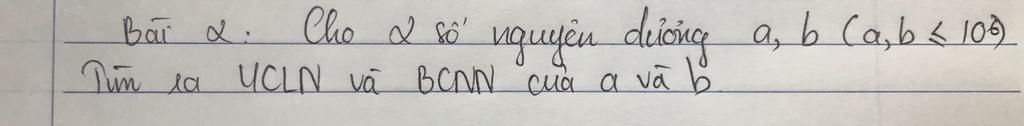 Bài 2: Cho 2 số nguyên dương a, b (a,b ≤ 10⁶)
Tìm ra ƯCLN và BCNN của a và b